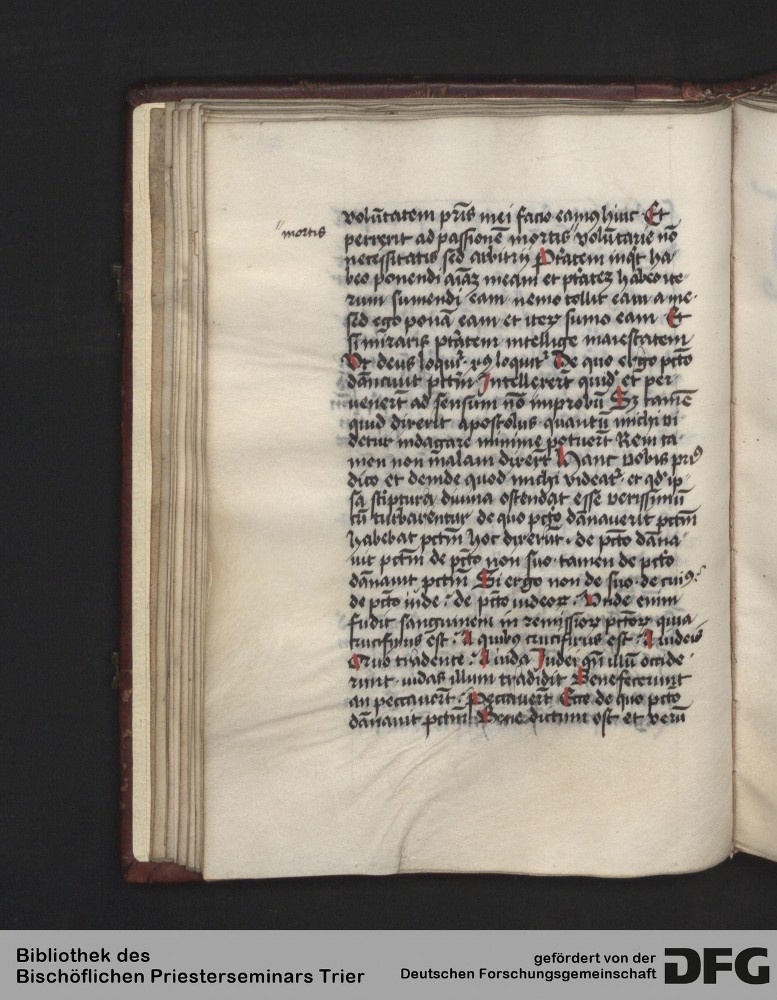 mortis
volūtatem pr̄is mei facio eamꝯ hinc Et
perrexit ad passionē mortis volūtarie nō
necessitatis sed arbitrij Ptātem inqͥt ha
beo ponendi aīaȝ meam et ptāteȝ habeo ite
rum sumendi eam nemo tollit eam a me
sed ego ponā eam et iterꝝ sumo eam Et
si mīraris ptātem intellige maiestatem
Vt deus loquiᷣ xꝯ loquitᷣ De quo ergo pctō
dāmauit pctm̄ Intellexerūt quidā et per
uenerūt ad sensum nō improbū Sȝ tamē
quid dixerit apostolus quantū michi vi
detur indagare minime potuerūt Rem ta
men non malam dixerūt Hanc vobis priꝯ
dico et deinde quod michi videatᷣ et qd̛ ip
sa scriptura diuina ostendat esse verissimū
cū turbarentur de quo pctō dānauerit pctm̄
habebat pctm̄ hoc dixerūt de pctō dāna
uit pctm̄ de pctō non suo tamen de pctō
dānauit pctm̄ Si ergo non de suo de cuiꝯ
de pctō iude de pctō iudeoꝝ Vnde enim
fudit sanguinem in remissioꝝ pctōꝝ quia
crucifixus est A quibꝯ crucifixus est A iudeis
Quo tradente A iuda Iudei qn̄ illū occide
runt iudas illum tradidit Benefecerunt
an peccauerūt Peccauerūt Ecce de quo pctō
dānauit pctm̄ Bene dictum est et verū
Bibliothek des
Bischöflichen Priesterseminars Trier
gefördert von der
Deutschen Forschungsgemeinschaft
DFG